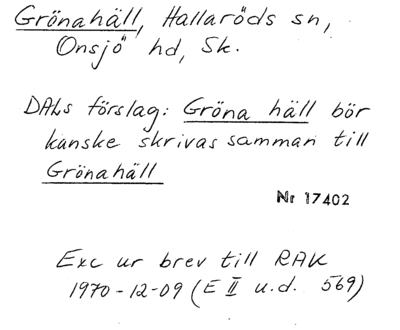 Grönahäll, Hallaröds sn,
Onsjö hd, Sk.
DALs förslag: Gröna häll bör
kanske skrivas samman till
Grönahäll
Nr 17402
Exc ur brev till RAK
1970-12-09 (E II u.d. 569)